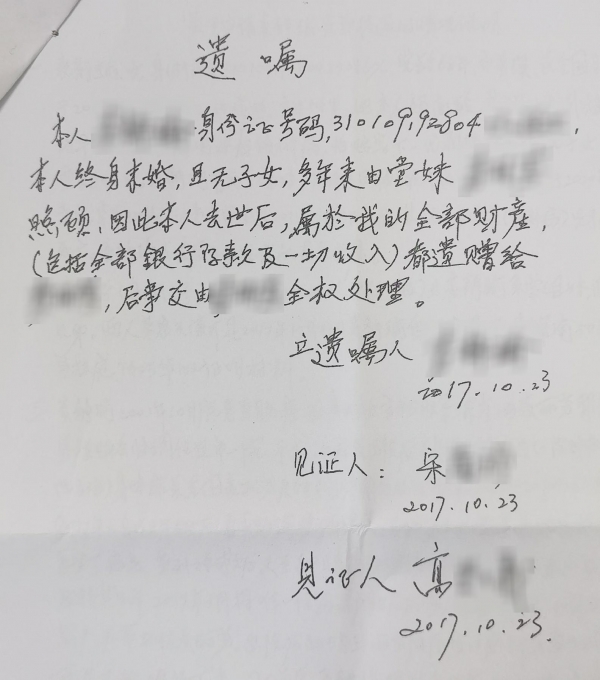 遗嘱
本人 身份证号码,310109192804 ,
本人终身未婚,且无子女,多年来由堂妹
照顾,因此本人去世后,属於我的全部财产,
(包括全部銀行存款及一切收入)都遗赠给
,后事交由 全权处理。
立遗嘱人
2017.10.23
见证人: 宋
2017.10.23
見证人 高
2017.10.23.